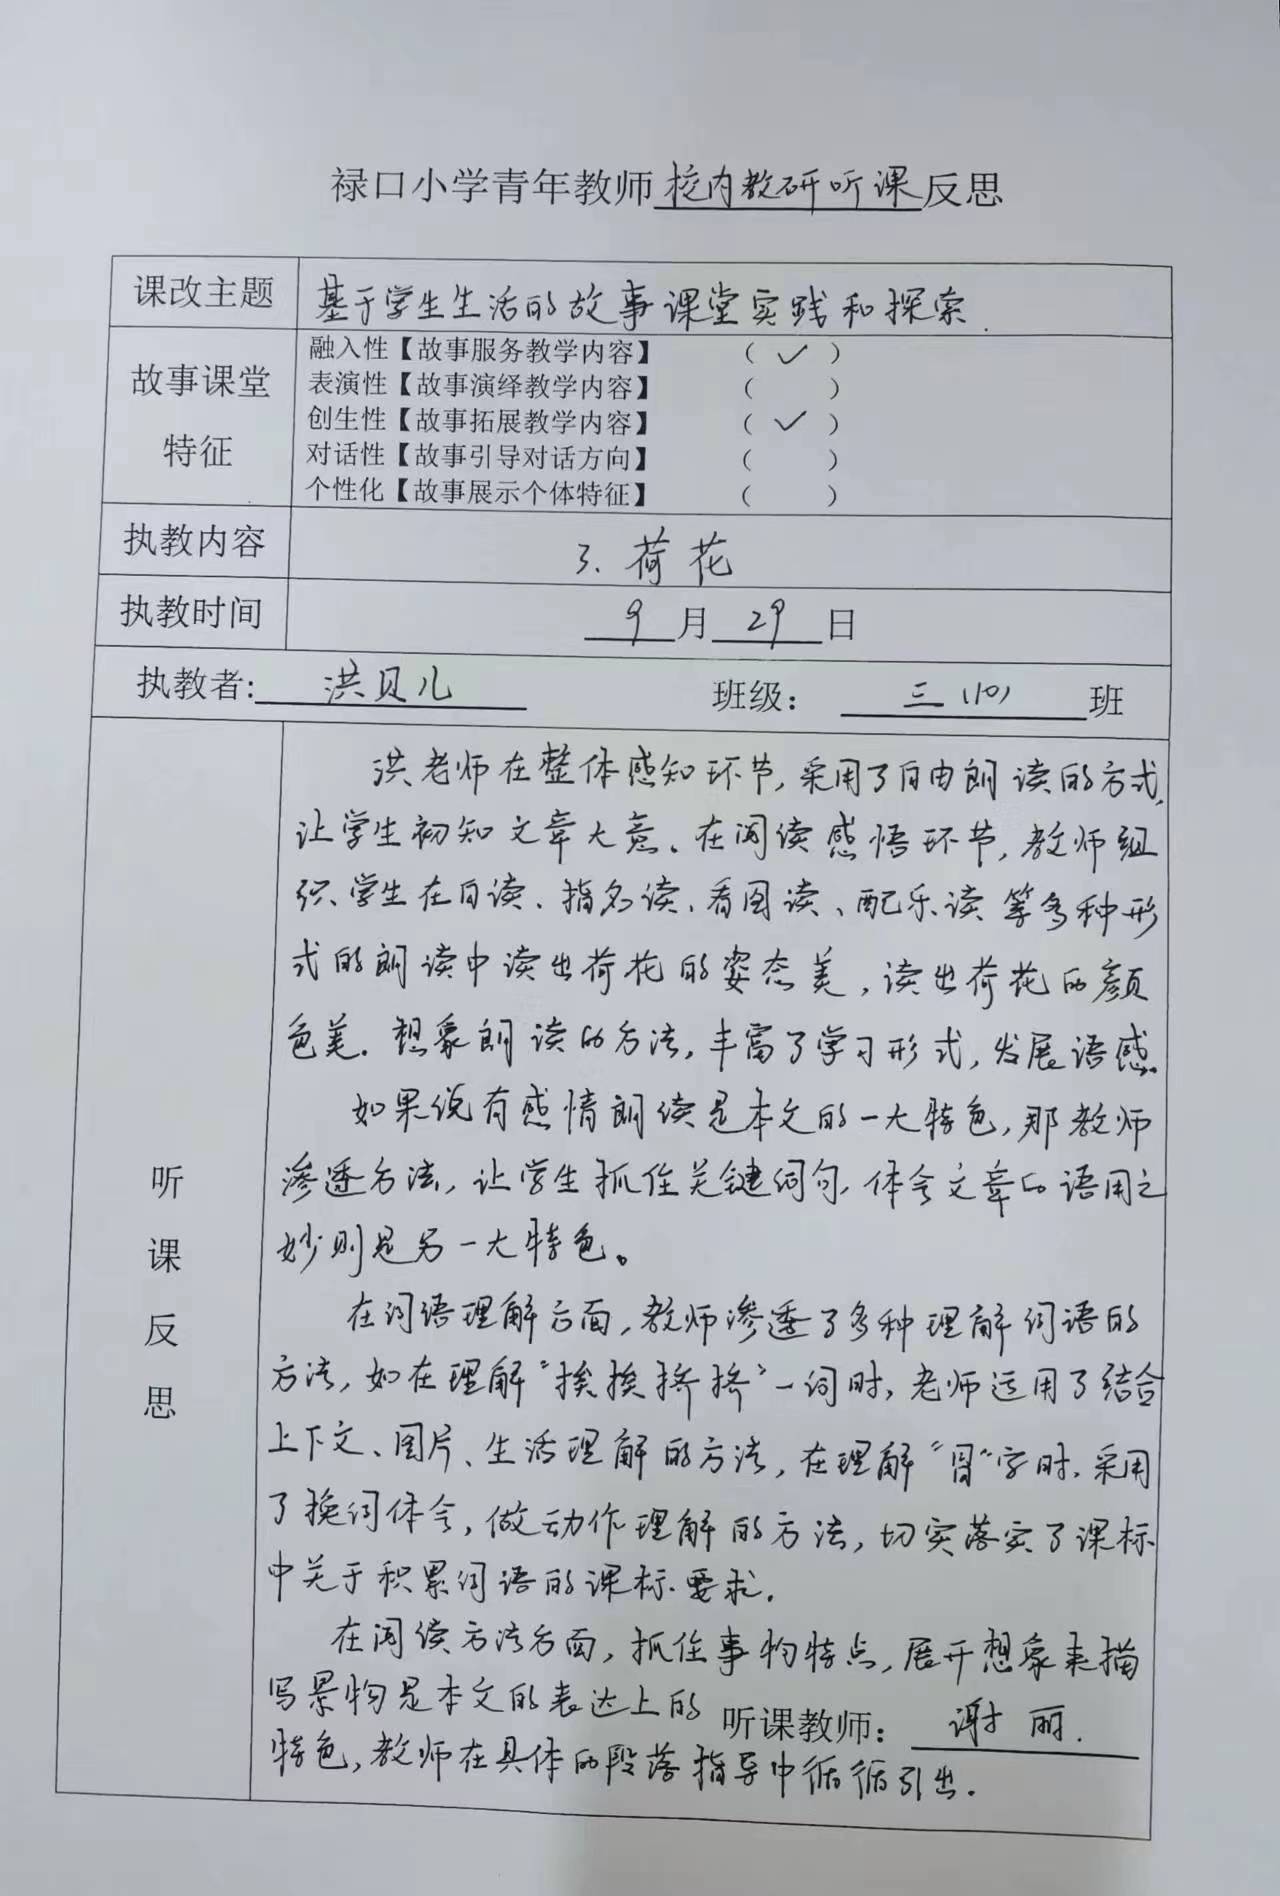 禄口小学青年教师校内教研听课反思
课改主题 基于学生生活的故事课堂实践和探索.
故事课堂特征
融入性【故事服务教学内容】 （ ✓ ）
表演性【故事演绎教学内容】 （ ）
创生性【故事拓展教学内容】 （ ✓ ）
对话性【故事引导对话方向】 （ ）
个性化【故事展示个体特征】 （ ）
执教内容 3. 荷花
执教时间 9月29日
执教者: 洪贝儿 班级： 三(10) 班
听课反思
洪老师在整体感知环节,采用了自由朗读的方式,
让学生初知文章大意。在阅读感悟环节,教师组
织学生在自读、指名读、看图读、配乐读等多种形
式的朗读中读出荷花的姿态美,读出荷花的颜
色美。想象朗读的方法,丰富了学习形式,发展语感。
如果说有感情朗读是本文的一大特色,那教师
渗透方法,让学生抓住关键词句,体会文章的语用之
妙则是另一大特色。
在词语理解方面,教师渗透了多种理解词语的
方法,如在理解“挨挨挤挤”一词时,老师运用了结合
上下文、图片、生活理解的方法,在理解“冒”字时,采用
了换词体会,做动作理解的方法,切实落实了课标
中关于积累词语的课标要求.
在阅读方法方面,抓住事物特点,展开想象来描
写景物是本文的表达上的
特色,教师在具体的段落指导中循循引出.
听课教师： 谢丽.